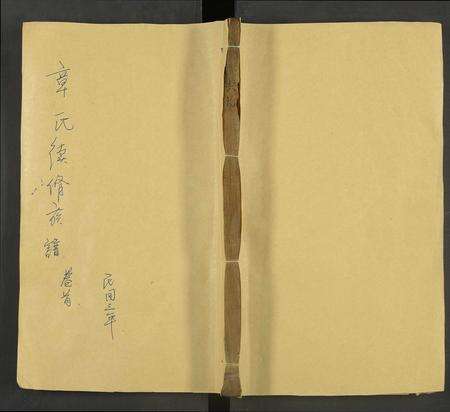 章氏续修族譜
卷首
民国三年